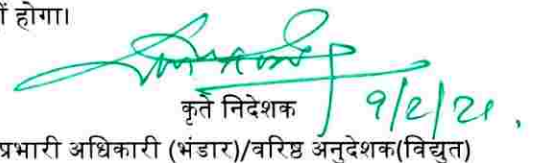 ं होगा।
कृते निदेशक
9/2/21,
प्रभारी अधिकारी (भंडार)/वरिष्ठ अनुदेशक(विद्युत)